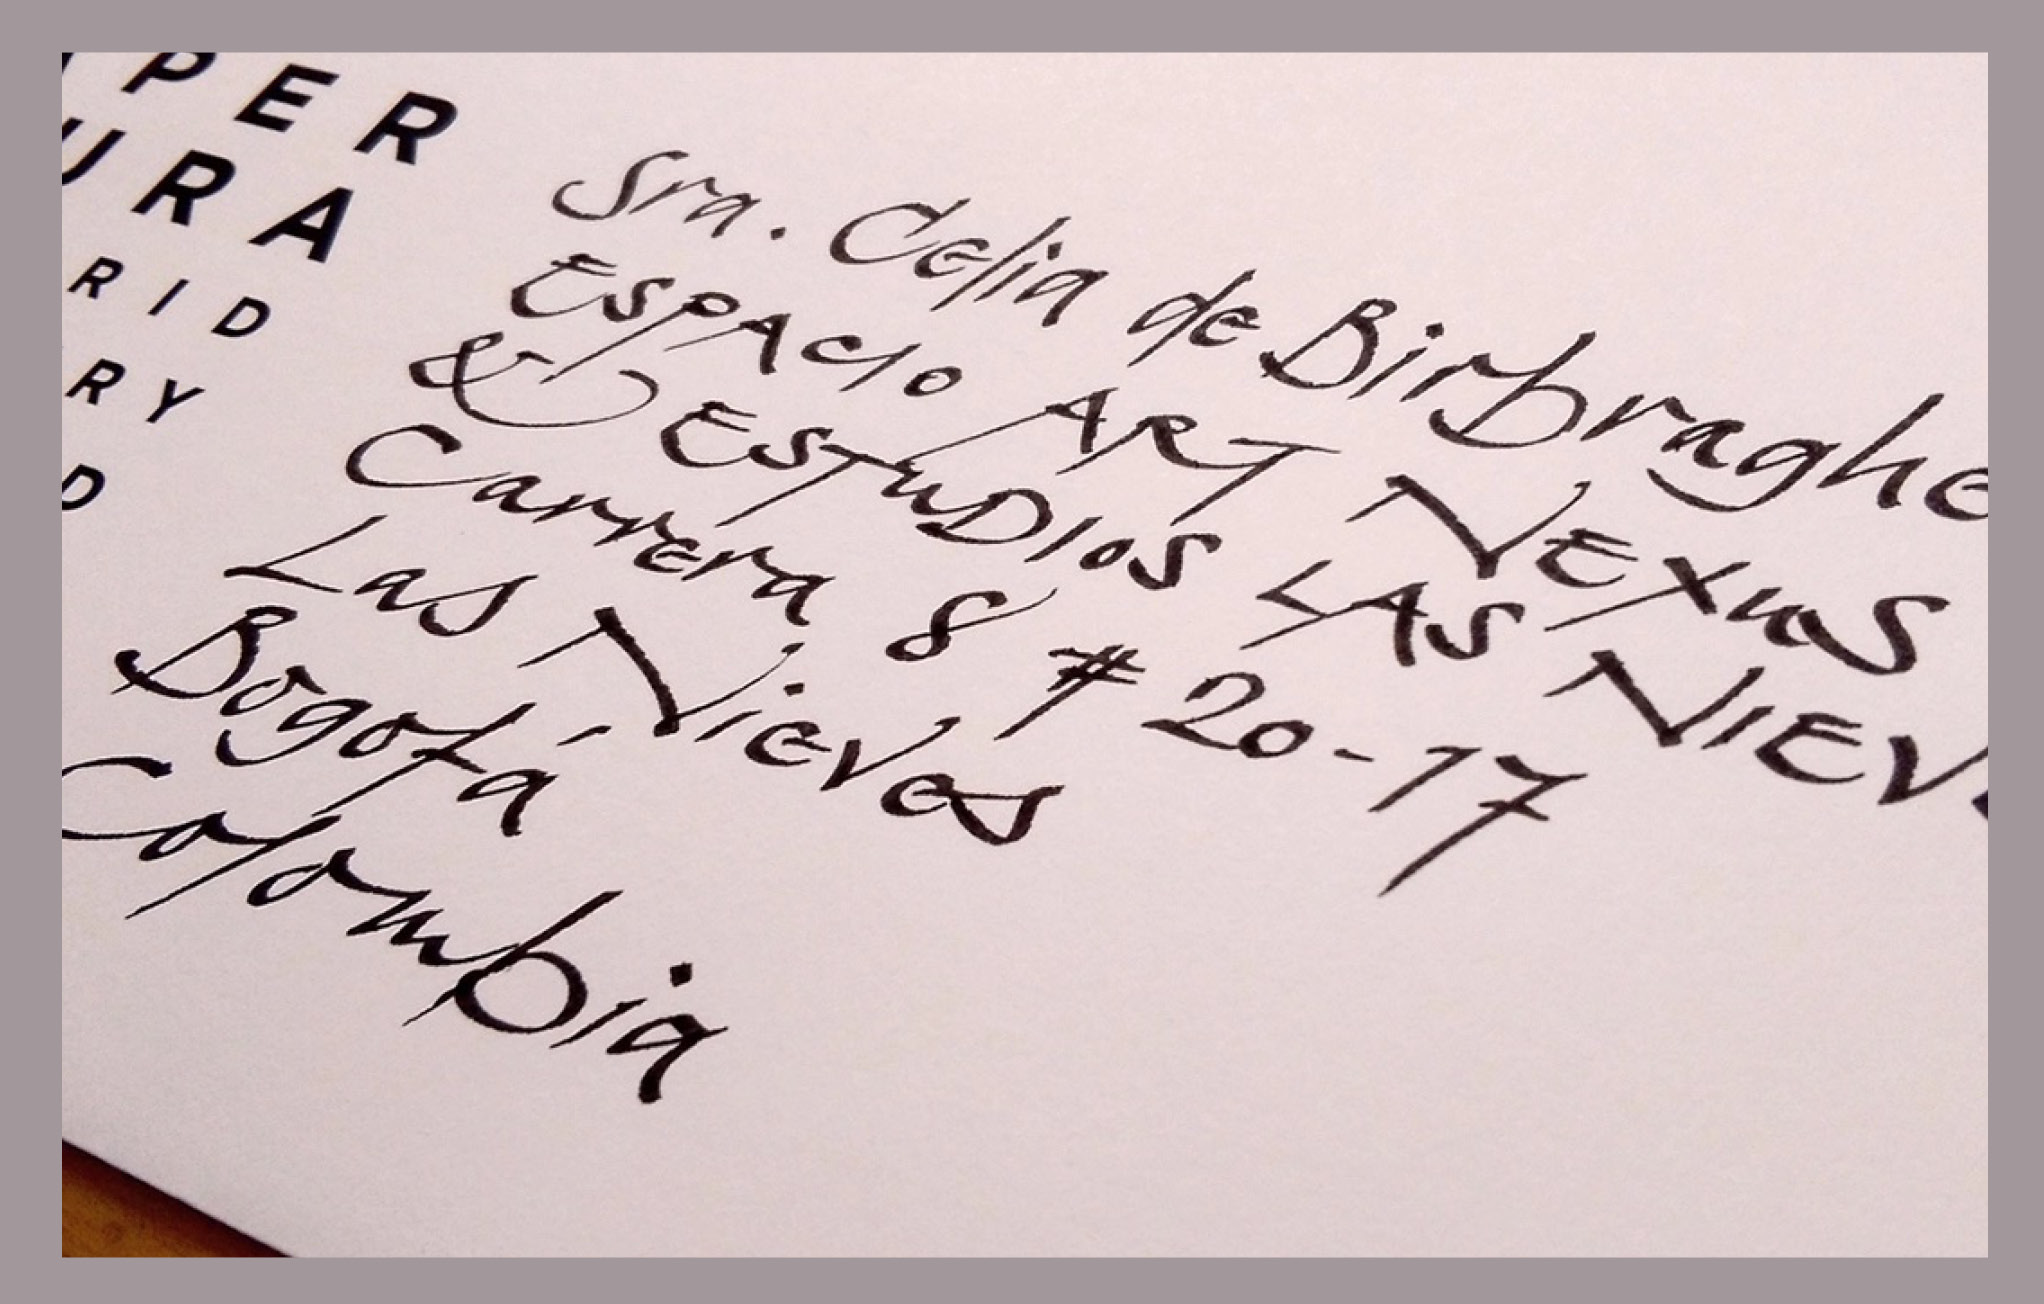 PER
URA
RID
RY
D
Sra. Celia de Birbraghe
ESPACIO ART NEXUS
& ESTUDIOS LAS NIEV
Carrera 8 # 20-17
Las Nieves
Bogotá
Colombia